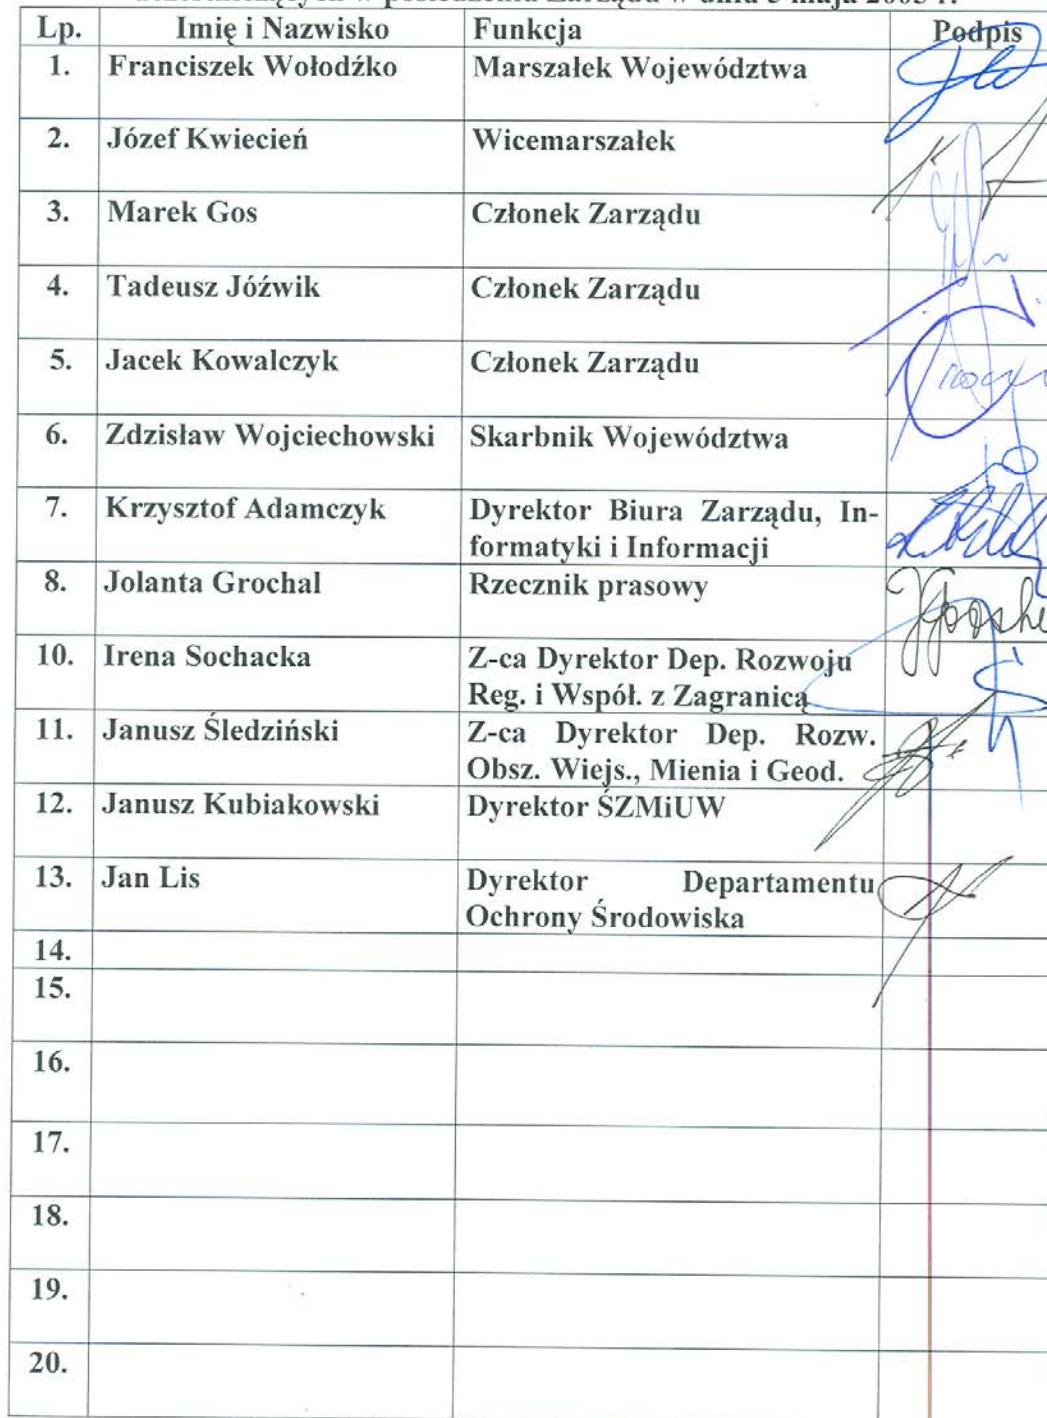 uczestniczących w posiedzeniu Zarządu w dniu 5 maja 2005 r.
Lp. Imię i Nazwisko Funkcja Podpis
1. Franciszek Wołodźko Marszałek Województwa
2. Józef Kwiecień Wicemarszałek
3. Marek Gos Członek Zarządu
4. Tadeusz Jóźwik Członek Zarządu
5. Jacek Kowalczyk Członek Zarządu
6. Zdzisław Wojciechowski Skarbnik Województwa
7. Krzysztof Adamczyk Dyrektor Biura Zarządu, In-
formatyki i Informacji
8. Jolanta Grochal Rzecznik prasowy
10. Irena Sochacka Z-ca Dyrektor Dep. Rozwoju
Reg. i Współ. z Zagranicą
11. Janusz Śledziński Z-ca Dyrektor Dep. Rozw.
Obsz. Wiejs., Mienia i Geod.
12. Janusz Kubiakowski Dyrektor ŚZMiUW
13. Jan Lis Dyrektor Departamentu
Ochrony Środowiska
14.
15.
16.
17.
18.
19.
20.